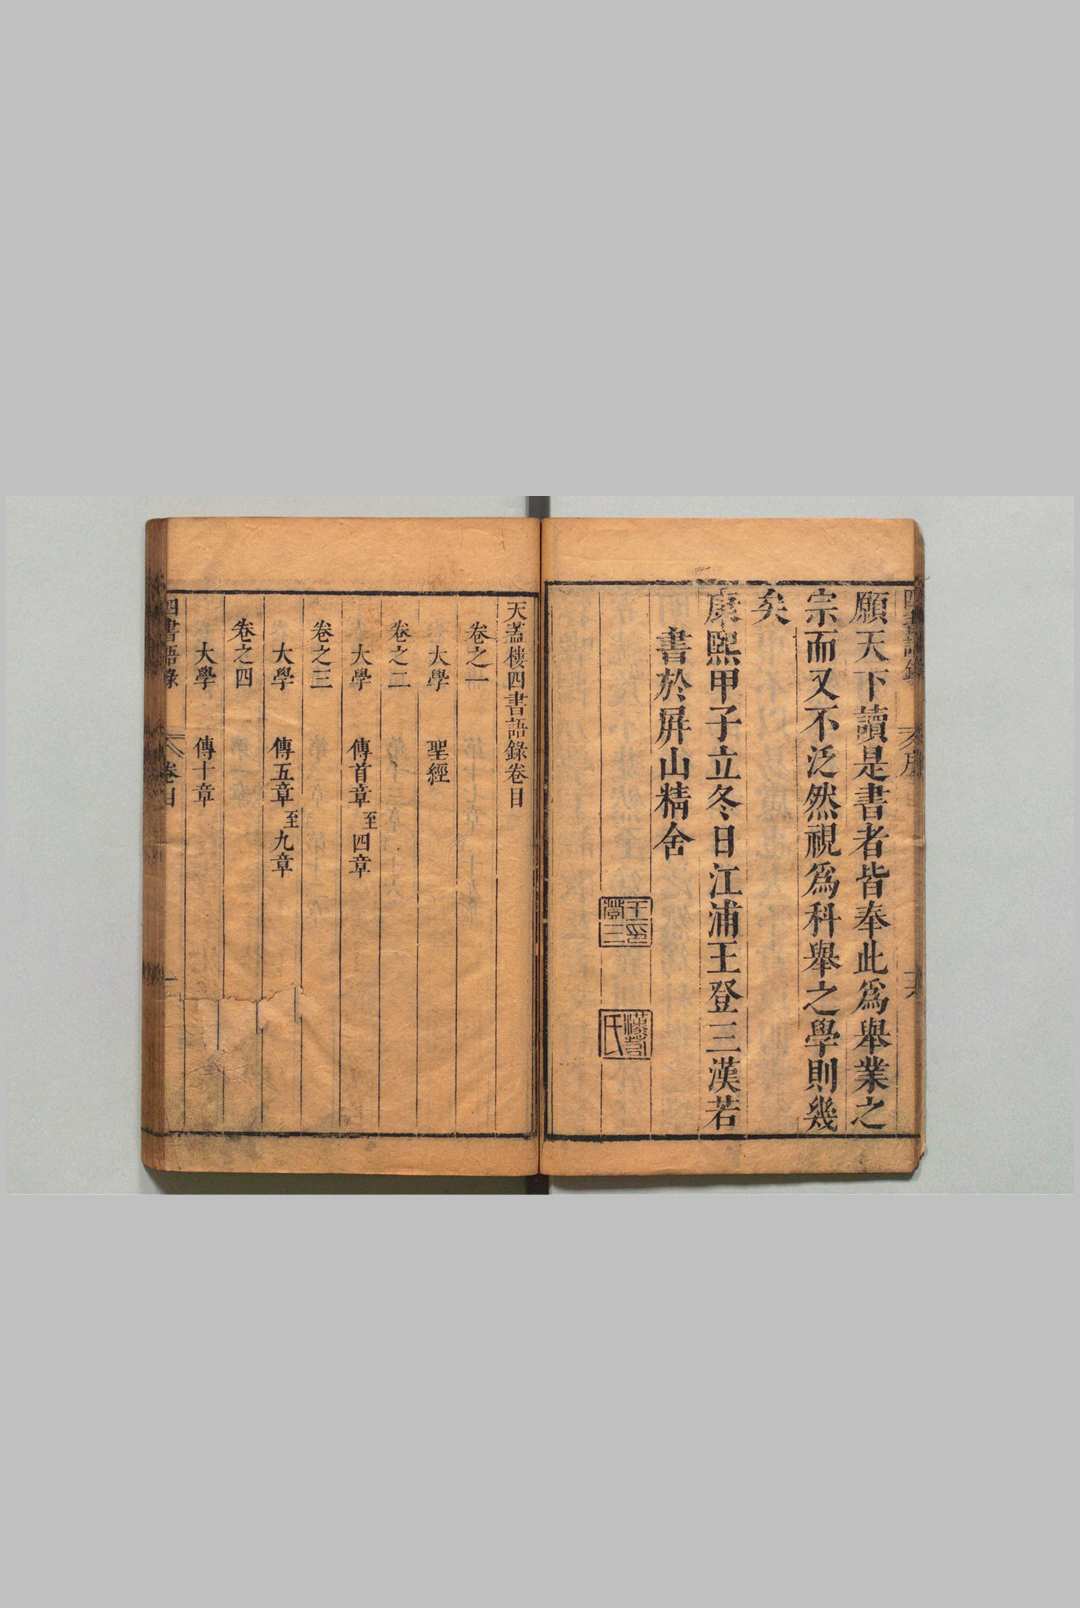 願天下讀是書者皆奉此爲舉業之
宗而又不泛然視爲科舉之學則幾
矣
康熙甲子立冬日江浦王登三漢若
書於屛山精舍
天蓋樓四書語錄卷目
卷之一
大學 聖經
卷之二
大學 傳首章至四章
卷之三
大學 傳五章至九章
卷之四
大學 傳十章
四書語錄 卷目 一